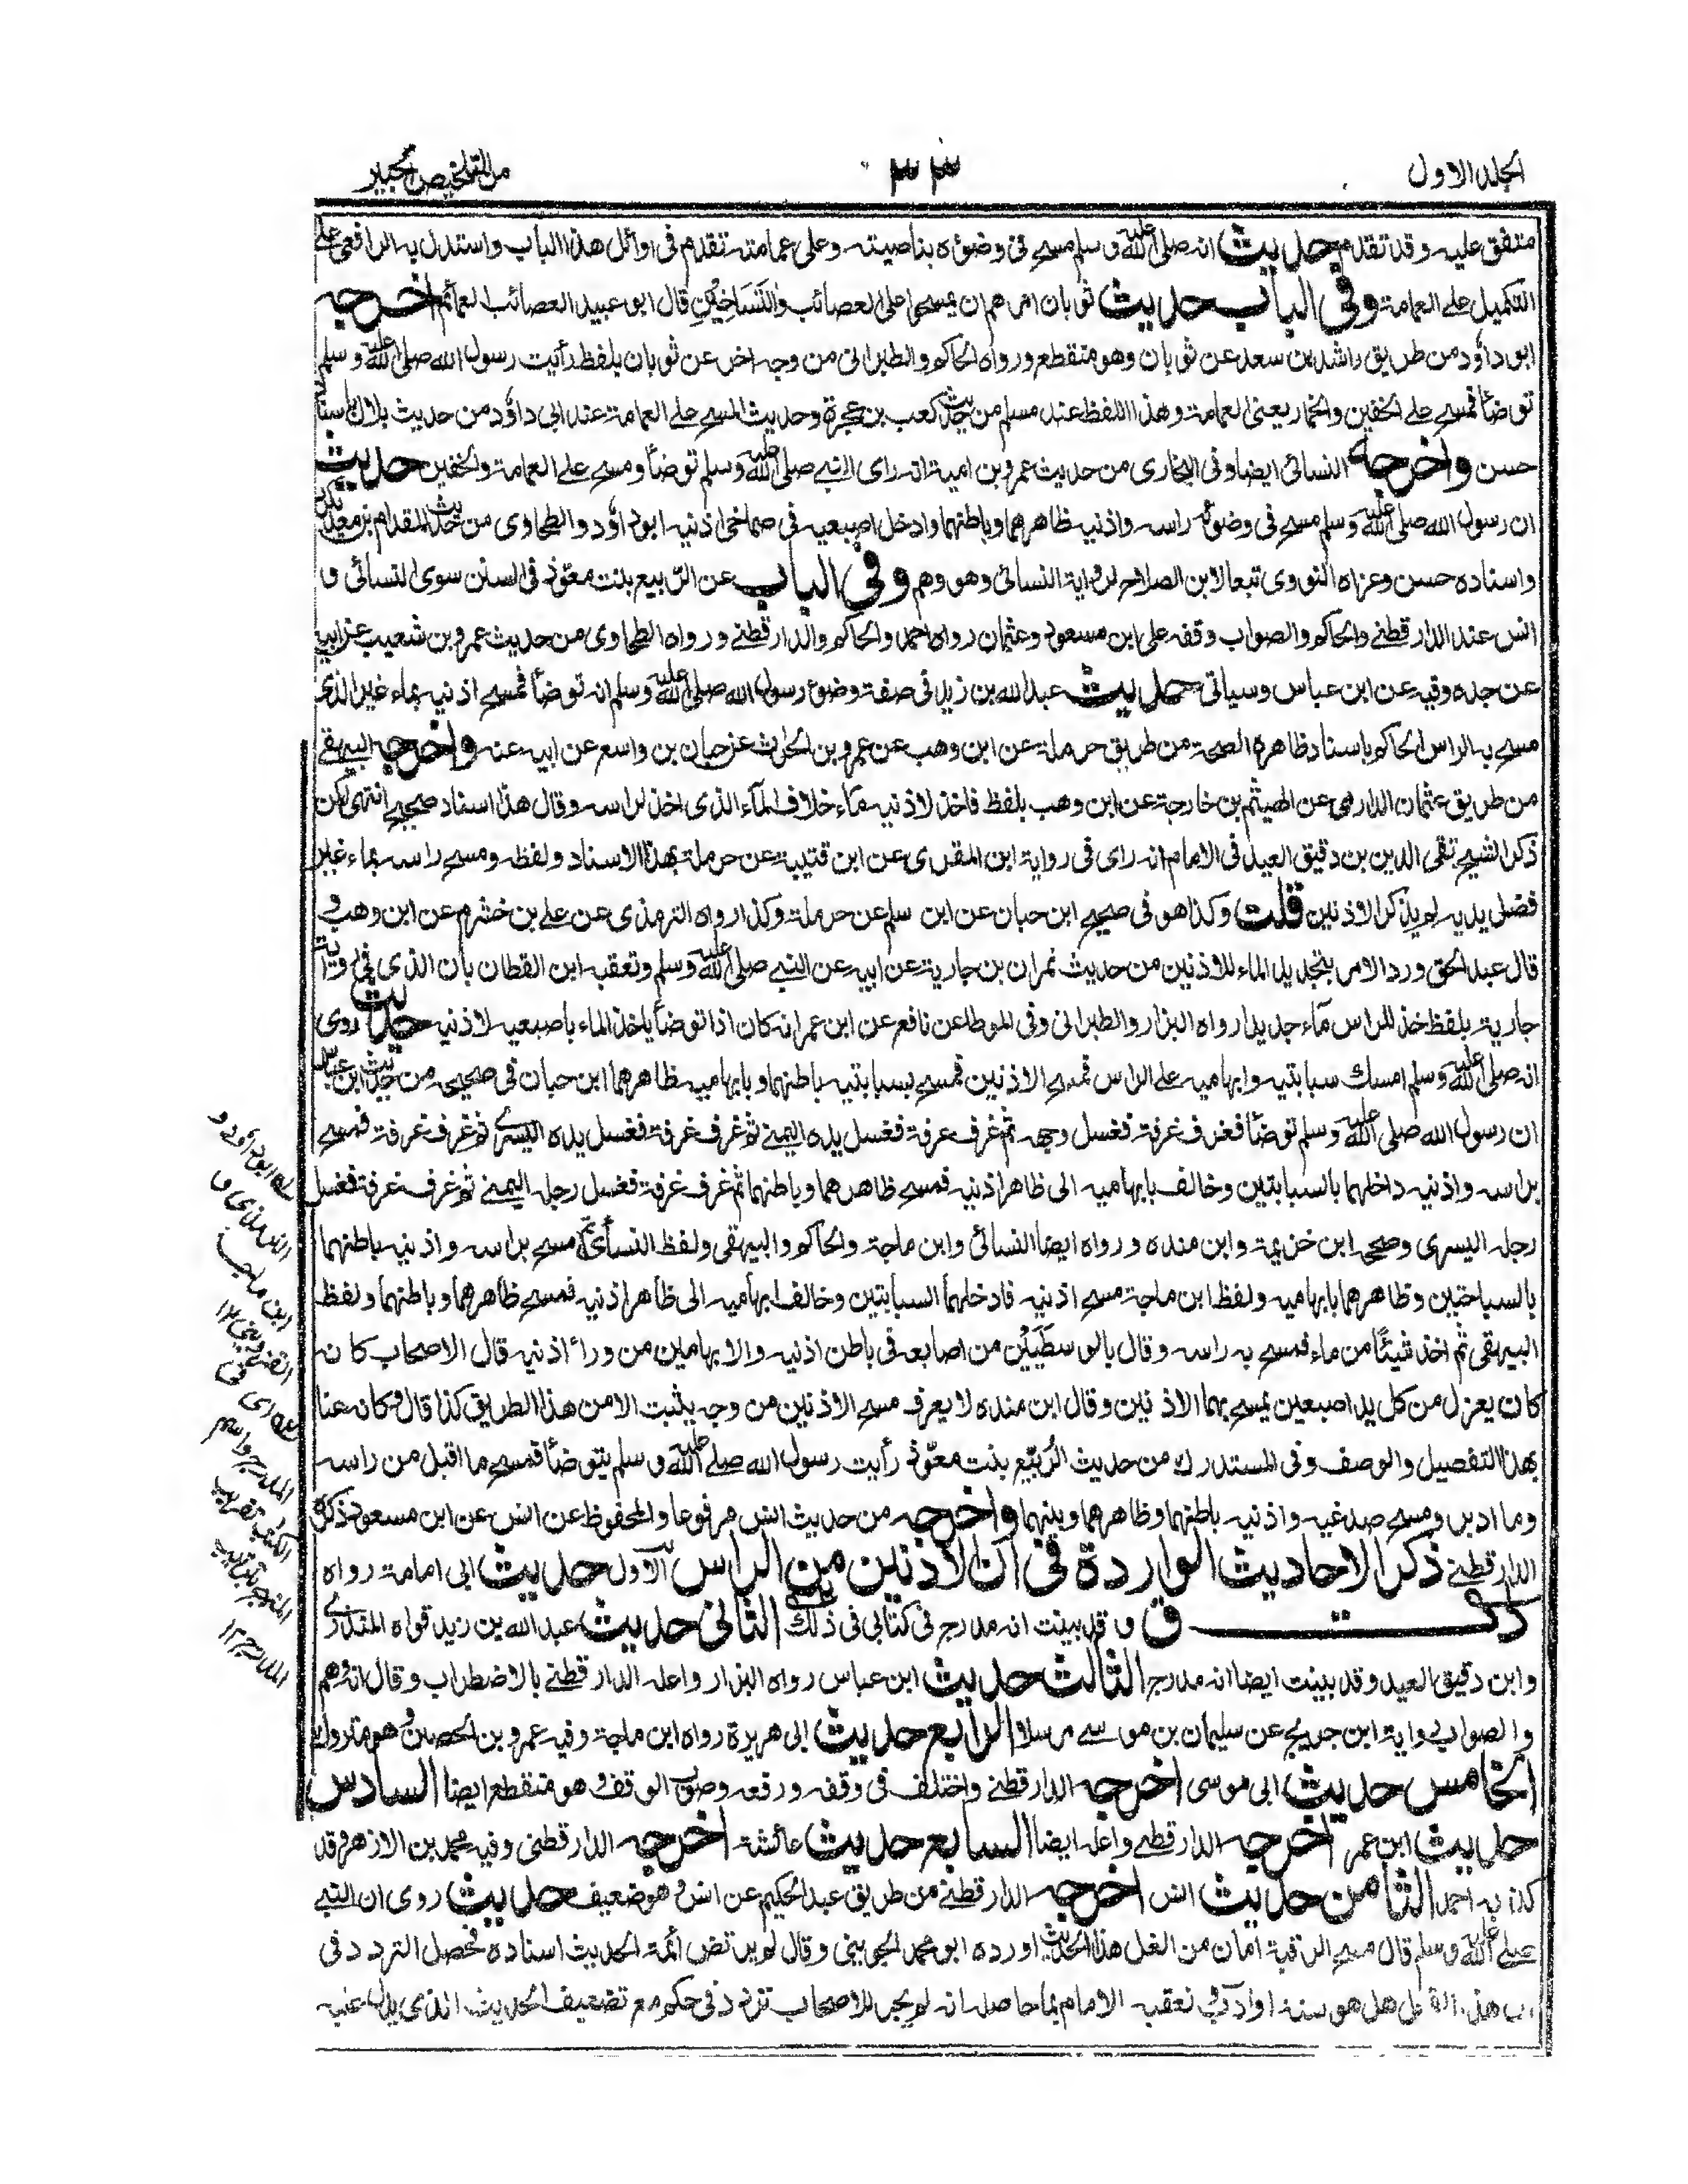 الجلد الاول
٣٣
من التلخيص الحبير
متفق عليه وقد تقدم حديث انه صلى الله عليه وسلم مسح فى وضوئه بناصيته وعلى عمامته تقدم فى اوائل هذا الباب واستدل به الرافعى على
التكميل على العمامة وفى الباب حديث ثوبان امرهم ان يمسحوا على العصائب والتساخين قال ابو عبيد العصائب العمائم اخرجه
ابو داؤد من طريق راشد بن سعد عن ثوبان وهو منقطع ورواه الحاكم والطبرانى من وجه اخر عن ثوبان بلفظ رأيت رسول الله صلى الله عليه وسلم
توضأ فمسح على الخفين والخمار يعنى العمامة وهذا اللفظ عند مسلم من حديث كعب بن عجرة وحديث المسح على العمامة عند ابى داؤد من حديث بلال باسناد
حسن واخرجه النسائى ايضا وفى البخارى من حديث عمرو بن امية انه راى النبى صلى الله عليه وسلم توضأ ومسح على العمامة والخفين حديث
ان رسول الله صلى الله عليه وسلم مسح فى وضوئه راسه واذنيه ظاهرهما وباطنهما وادخل اصبعيه فى صماخى اذنيه ابو داؤد والطحاوى من حديث المقدام بن معديكرب
واسناده حسن وعزاه النووى تبعا لابن الصلاح لرواية النسائى وهو وهم وفى الباب عن الربيع بنت معوّذ فى السنن سوى النسائى و
انس عند الدارقطنى والحاكم والصواب وقفه على ابن مسعود وعثمان رواه احمد والحاكم والدارقطنى ورواه الطحاوى من حديث عمرو بن شعيب عن ابيه
عن جده وفيه عن ابن عباس وسياتى حديث عبد الله بن زيد فى صفة وضوء رسول الله صلى الله عليه وسلم انه توضأ فمسح اذنيه بماء غير الذى
مسح به الراس الحاكم باسناد ظاهره الصحة من طريق حرملة عن ابن وهب عن عمرو بن الحارث عن حبان بن واسع عن ابيه عنه واخرجه البيهقى
من طريق عثمان الدارمى عن الهيثم بن خارجة عن ابن وهب بلفظ فاخذ لاذنيه ماء خلاف الماء الذى اخذ لراسه وقال هذا اسناد صحيح انتهى لكن
ذكر الشيخ تقى الدين بن دقيق العيد فى الامام انه راى فى رواية ابن المقرى عن ابن قتيبة عن حرملة بهذا الاسناد ولفظه ومسح راسه بماء غير
فضل يديه لم يذكر الاذنين قلت وكذا هو فى صحيح ابن حبان عن ابن سلم عن حرملة وكذا رواه الترمذى عن على بن خشرم عن ابن وهب و
قال عبد الحق ورد الامر بتجديد الماء للاذنين من حديث نمران بن جارية عن ابيه عن النبى صلى الله عليه وسلم وتعقبه ابن القطان بان الذى فى رواية
جارية بلفظ خذ للراس ماء جديدا رواه البزار والطبرانى وفى الموطا عن نافع عن ابن عمر انه كان اذا توضأ ياخذ الماء باصبعيه لاذنيه حديث روى
انه صلى الله عليه وسلم امسك سبابتيه وابهاميه على الراس فمسح الاذنين فمسح بسبابتيه باطنهما وبابهاميه ظاهرهما ابن حبان فى صحيحه من حديث ابن عباس
ان رسول الله صلى الله عليه وسلم توضأ فغرف غرفة فغسل وجهه ثم غرف غرفة فغسل يده اليمنى ثم غرف غرفة فغسل يده اليسرى ثم غرف غرفة فمسح
براسه واذنيه داخلهما بالسبابتين وخالف بابهاميه الى ظاهر اذنيه فمسح ظاهرهما وباطنهما ثم غرف غرفة فغسل رجله اليمنى ثم غرف غرفة فغسل
رجله اليسرى وصححه ابن خزيمة وابن منده ورواه ايضا النسائى وابن ماجة والحاكم والبيهقى ولفظ النسائى ثم مسح براسه واذنيه باطنهما
بالسباحتين وظاهرهما بابهاميه ولفظ ابن ماجة مسح اذنيه فادخلهما السبابتين وخالف ابهاميه الى ظاهر اذنيه فمسح ظاهرهما وباطنهما ولفظ
البيهقى ثم اخذ شيئا من ماء فمسح به راسه وقال بالوسطيين من اصابعه فى باطن اذنيه والابهامين من وراء اذنيه قال الاصحاب كانه
كان يعزل من كل يد اصبعين يمسح بهما الاذنين وقال ابن منده لا يعرف مسح الاذنين من وجه يثبت الا من هذا الطريق كذا قال وكانه عنا
بهذا التفصيل والوصف وفى المستدرك من حديث الربيّع بنت معوّذ رأيت رسول الله صلى الله عليه وسلم يتوضأ فمسح ما اقبل من راسه
وما ادبر ومسح صدغيه واذنيه باطنهما وظاهرهما واخرجه من حديث انس مرفوعا والمحفوظ عن انس عن ابن مسعود ذكره
الدارقطنى ذكر الاحاديث الواردة فى ان الاذنين من الراس الاول حديث ابى امامة رواه
د ت ق وقد بينت انه مدرج فى كتابى فى ذلك الثانى حديث عبد الله بن زيد قواه المنذرى
وابن دقيق العيد وقد بينت ايضا انه مدرج الثالث حديث ابن عباس رواه البزار واعله الدارقطنى بالاضطراب وقال انه وهم
والصواب رواية ابن جريج عن سليمان بن موسى مرسلا الرابع حديث ابى هريرة رواه ابن ماجة وفيه عمرو بن الحصين وهو متروك
الخامس حديث ابى موسى اخرجه الدارقطنى واختلف فى وقفه ورفعه وصوّب الوقف وهو منقطع ايضا السادس
حديث ابن عمر اخرجه الدارقطنى واعله ايضا السابع حديث عائشة اخرجه الدارقطنى وفيه محمد بن الازهر وقد
كذبه احمد الثامن حديث انس اخرجه الدارقطنى من طريق عبد الحكيم عن انس وهو ضعيف حديث روى ان النبى
صلى الله عليه وسلم قال مسح الرقبة امان من الغل هذا الحديث اورده ابو محمد الجوينى وقال لم يرتض ائمة الحديث اسناده فحصل التردد فى
هل هو سنة او ادب وتعقبه الامام بما حاصله انه لم يجر للاصحاب تردد فى حكم مع تضعيف الحديث الذى يدل عليه
له ابو داؤد و
الترمذى و
ابن ماجه
القزوينى ١٢
له اى فى
المدرج واسم
الكتاب تقريب
المنهج بترتيب
المدرج ١٢